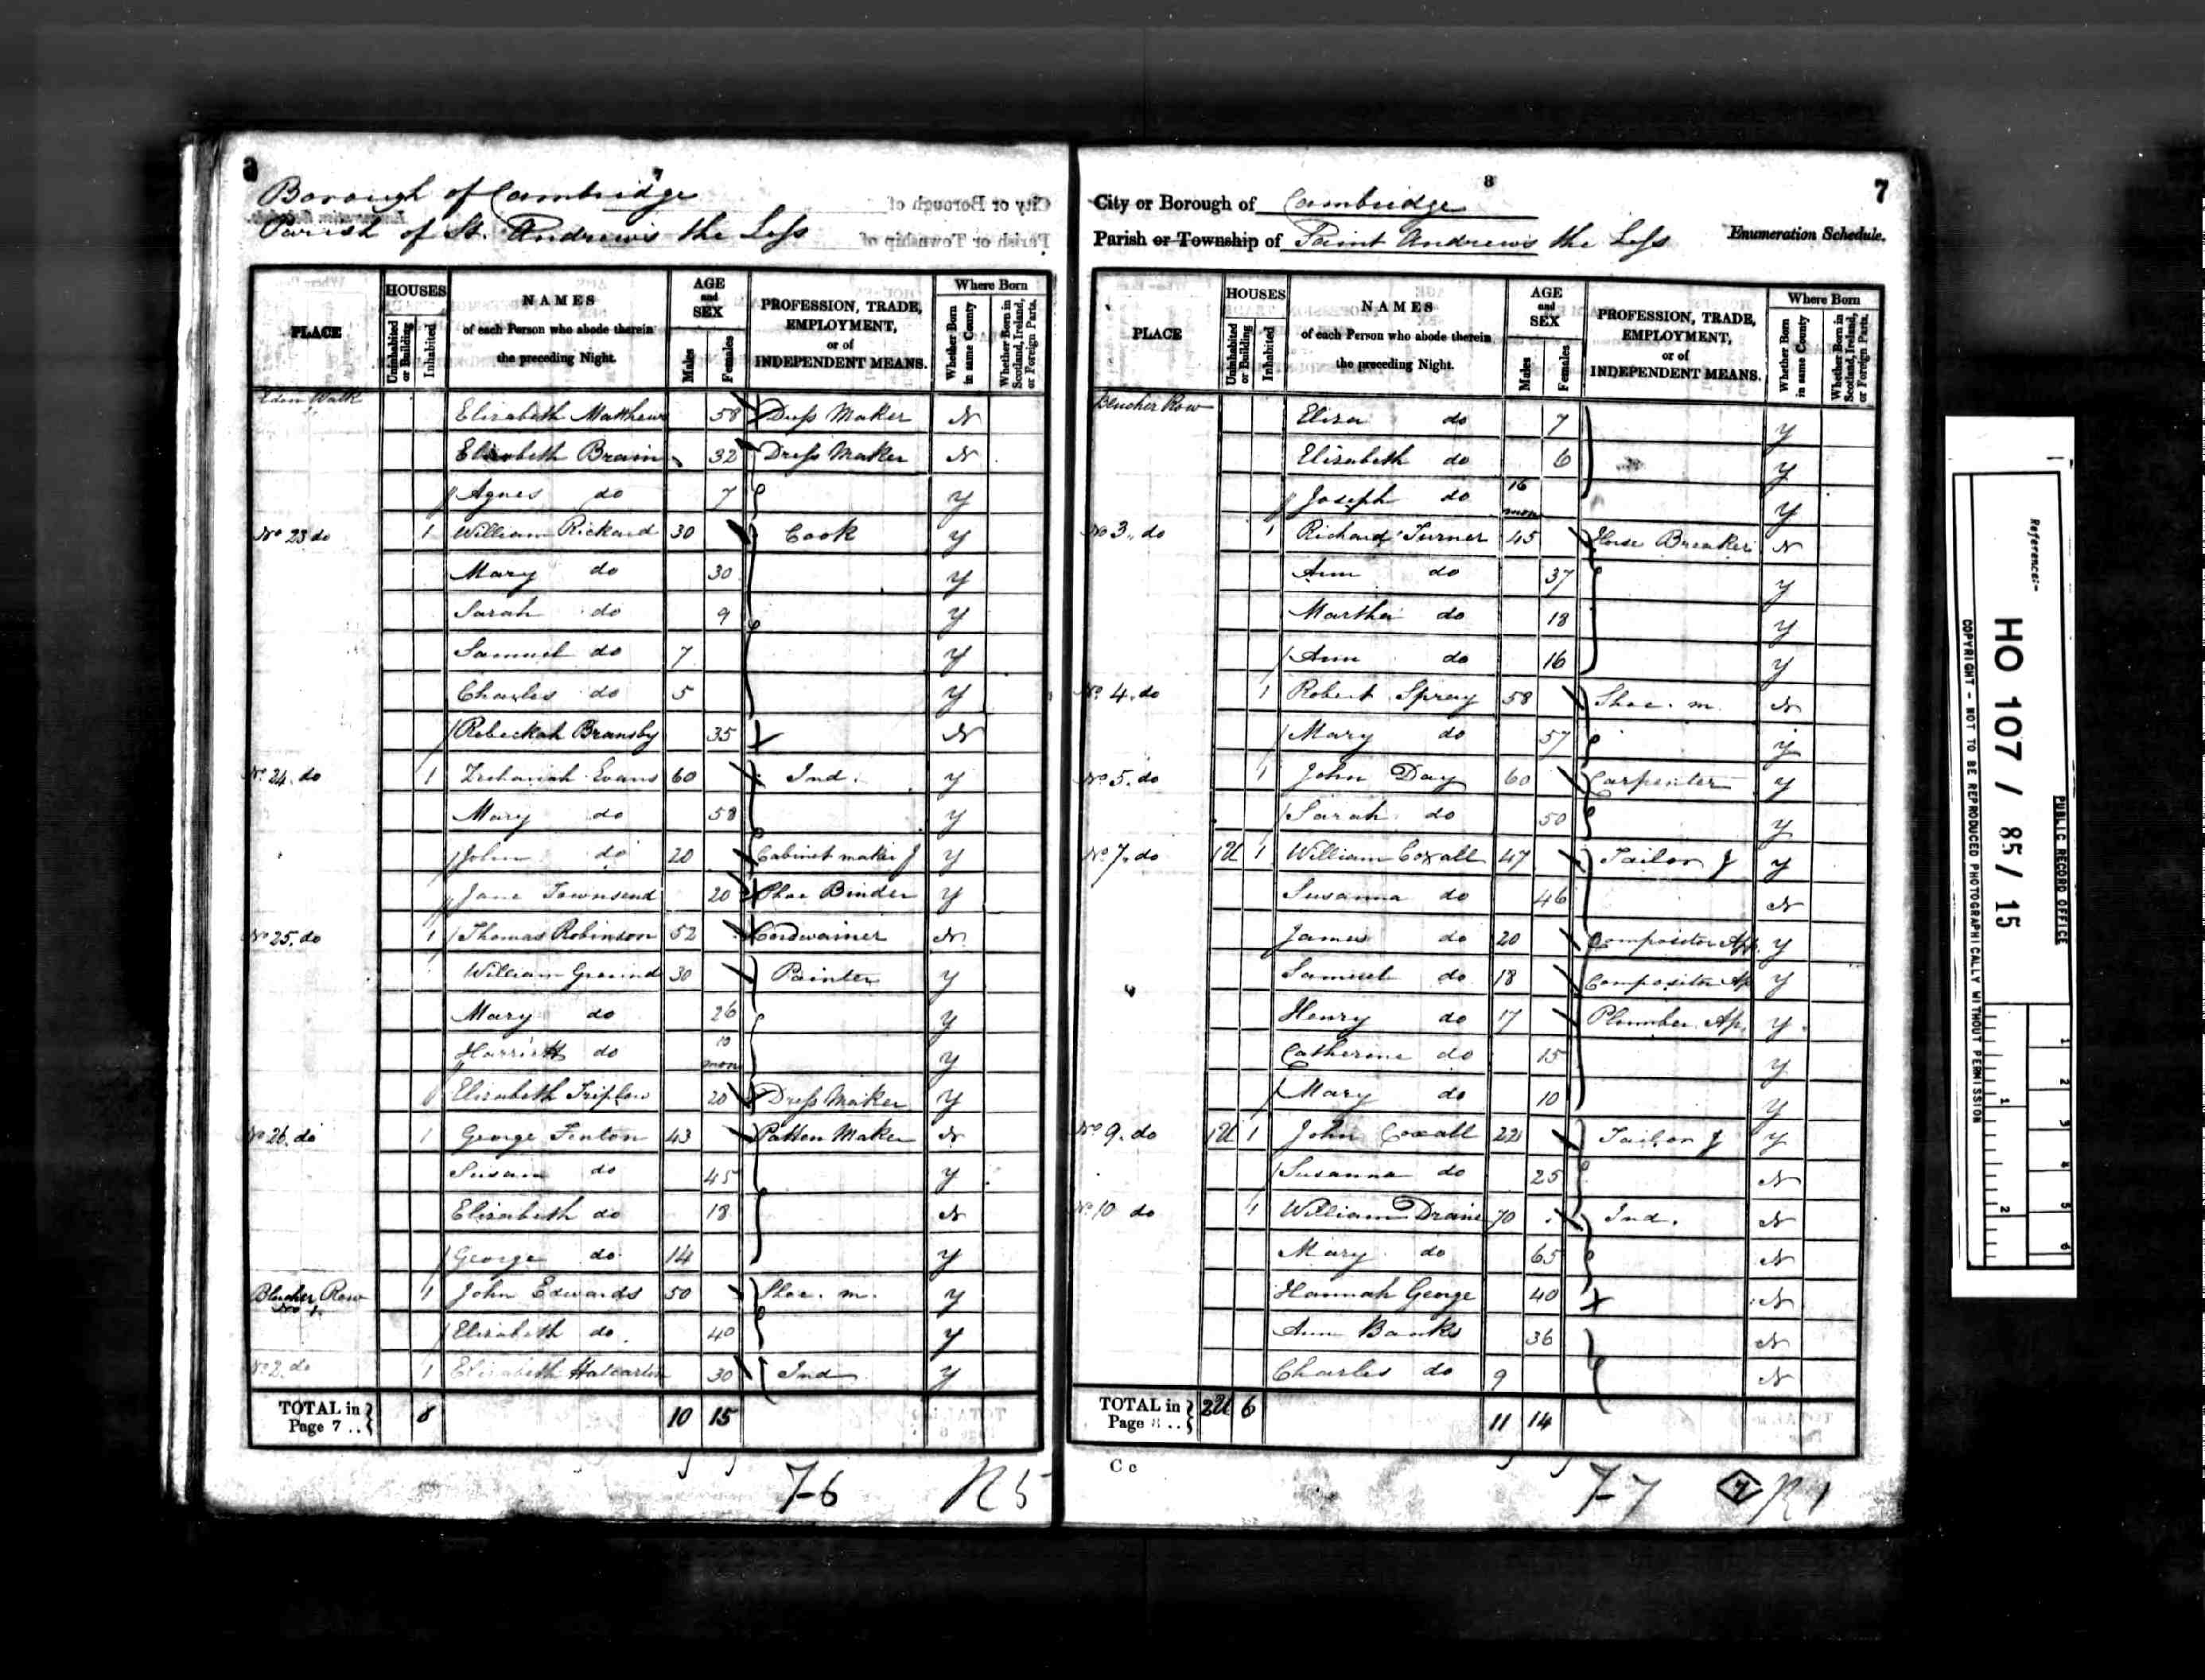 7
Borough of Cambridge
Parish of St. Andrew's the Less
PLACE
HOUSES
Uninhabited or Building
Inhabited
NAMES
of each Person who abode therein
the preceding Night.
AGE
and
SEX
Males
Females
PROFESSION, TRADE,
EMPLOYMENT,
or of
INDEPENDENT MEANS.
Where Born
Whether Born in same County
Whether Born in Scotland, Ireland, or Foreign Parts.
Eden Walk Elizabeth Matthews 58 Dress Maker N
Elizabeth Brain 32 Dress Maker N
Agnes do 7 y
No 23 do 1 William Rickard 30 Cook y
Mary do 30 y
Sarah do 9 y
Samuel do 7 y
Charles do 5 y
Rebeckah Bransby 35 N
No 24. do 1 Evans 60 Ind. y
Mary do 58 y
John do 20 Cabinet maker J y
Jane Townsend 20 Shoe Binder y
No 25. do 1 Thomas Robinson 52 Cordwainer N
William Ground 30 Painter y
Mary do 26 y
Harriett do 10 mon y
Elizabeth Triplow 20 Dress Maker y
No 26. do 1 George Fenton 43 Patten Maker N
Susan do 45 y
Elizabeth do 18 N
George do 14 y
Blucher Row No 1. 1 John Edwards 50 Shoe. m. y
Elizabeth do 40 y
No 2. do 1 Elizabeth 30 Ind y
TOTAL in Page 7 .. 8 10 15
7-6 R 5
8
7
City or Borough of Cambridge
Parish or Township of Saint Andrew's the Less
Enumeration Schedule.
PLACE
HOUSES
Uninhabited or Building
Inhabited
NAMES
of each Person who abode therein
the preceding Night.
AGE
and
SEX
Males
Females
PROFESSION, TRADE,
EMPLOYMENT,
or of
INDEPENDENT MEANS.
Where Born
Whether Born in same County
Whether Born in Scotland, Ireland, or Foreign Parts.
Blucher Row Eliza do 7 y
Elizabeth do 6 y
Joseph do 16 mon y
No 3. do 1 Richard Turner 45 Horse Breaker N
Ann do 37 y
Martha do 18 y
Ann do 16 y
No. 4. do 1 Robert Spray 58 Shoe. m. N
Mary do 57 y
No 5. do 1 John Day 60 Carpenter y
Sarah do 50 y
No 7. do 1U 1 William Coxall 47 Tailor J y
Susanna do 46 N
James do 20 Compositor App. y
Samuel do 18 Compositor Ap y
Henry do 17 Plumber Ap. y
Catherine do 15 y
Mary do 10 y
No 9. do 1U 1 John Coxall 22 Tailor J y
Susanna do 25 N
No. 10 do 1 William Draine 70 Ind. N
Mary do 65 N
Hannah George 40 N
Ann Banks 36 N
Charles do 9 N
TOTAL in Page 8 .. 2U 6 11 14
C c
7-7 7 R 1
Reference:-
HO 107 / 85/ 15
PUBLIC RECORD OFFICE
COPYRIGHT - NOT TO BE REPRODUCED PHOTOGRAPHICALLY WITHOUT PERMISSION
1 2 3 4 5 6
1 2